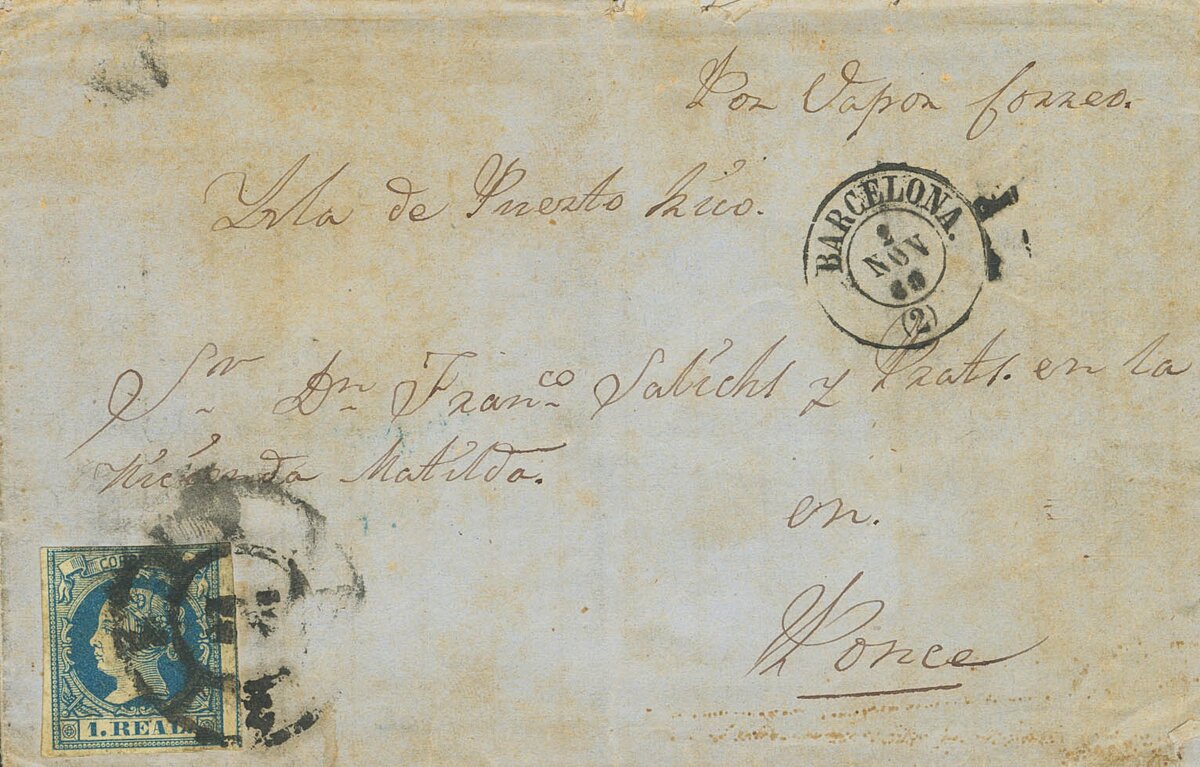 Por Vapor Correo.
Ysla de Puerto Rico.
BARCELONA.
2
NOV
60
(2)
Sr Dn Franco Salichs y Prats. en la
Hacienda Matilda.
en.
Ponce
1. REAL